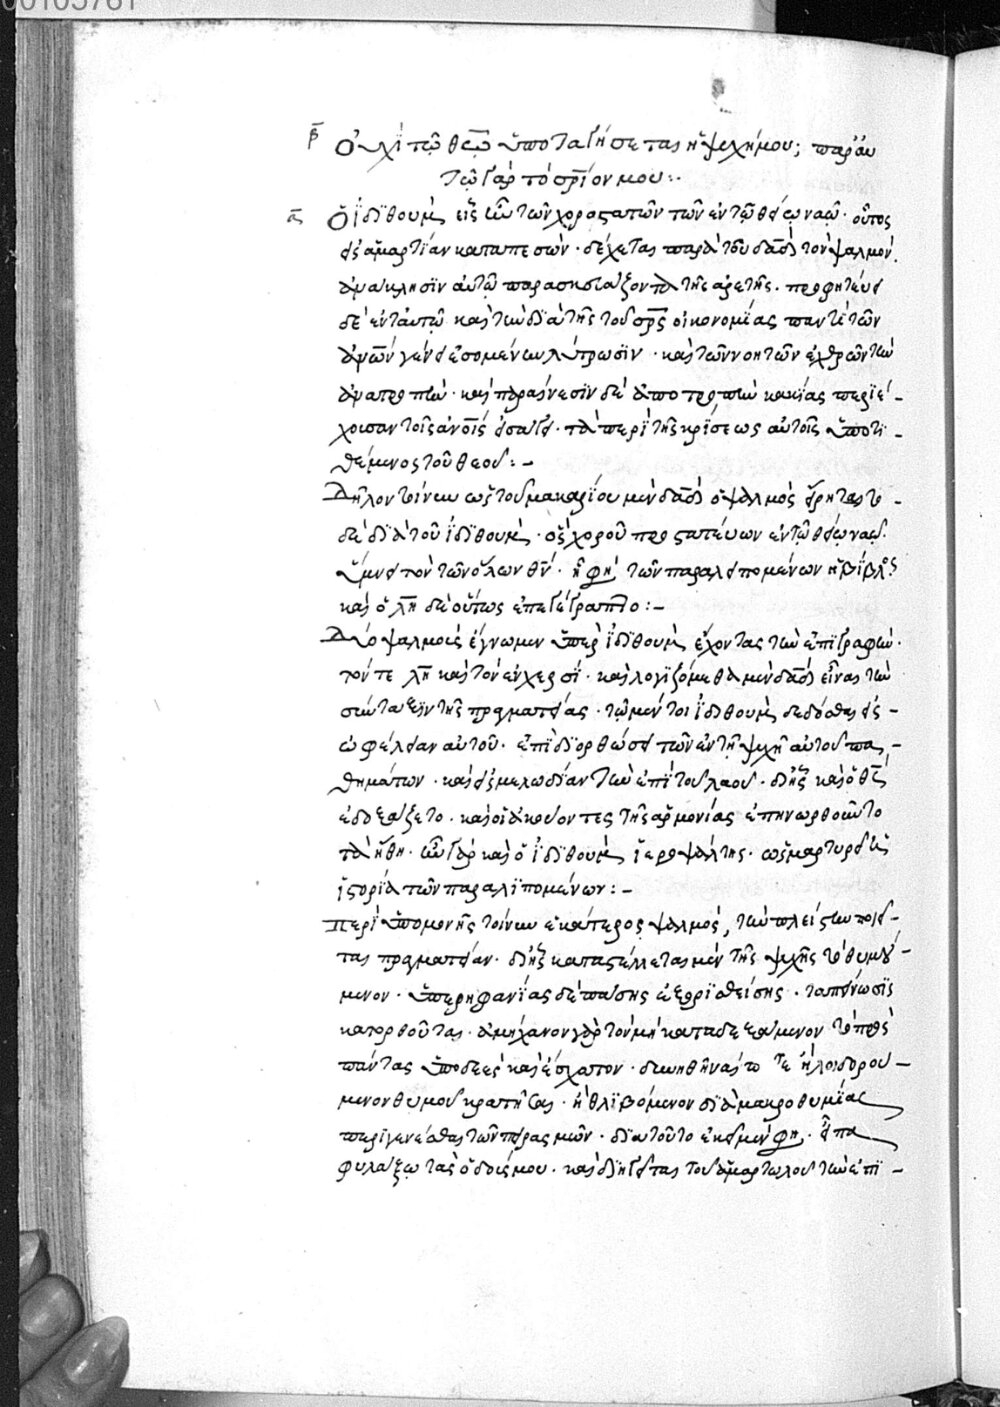 00105761
β Οὐχὶ τῷ θεῷ ὑποταγήσεται ἡ ψυχή μου; παρ' αὐ
τῷ γὰρ τὸ σρίον μου:
α Ὁ ἰδιθουμ εἷς ἦν τῶν χοροστατῶν τῶν ἐν τῷ θείῳ ναῷ. οὗτος
εἰς ἁμαρτίαν καταπεσών. δέχεται παρὰ τοῦ δαδ τὸν ψαλμόν.
ἀνάκλησιν αὐτῷ παρασκευάζοντα τῆς ἀρετῆς. προφητεύει
δὲ ἐν ταυτῷ καὶ τὴν διὰ τῆς τοῦ σρς οἰκονομίας παντὶ τῶν
ἀνων γένει ἐσομένην λύτρωσιν. καὶ τῶν νοητῶν ἐχθρῶν τὴν
ἀνατροπήν. καὶ παραίνεσιν δὲ ἀποτροπὴν κακίας περιέ-
χουσαν τοῖς ἀνοις εἰσάγει. τὰ περὶ τῆς κρίσεως αὐτοῖς ὑποτι-
θέμενος τοῦ θεοῦ:-
Δῆλον τοίνυν ὡς τοῦ μακαρίου μὲν δαδ ὁ ψαλμὸς εἴρηται
δὲ διὰ τοῦ ἰδιθουμ. ὃς χοροῦ προστατεύων ἐν τῷ θείῳ ναῷ.
ὕμνει τὸν τῶν ὅλων θν. ᾗ φη τῶν παραλειπομένων ἡ βίβλος
καὶ ὁ λη δὲ οὕτως ἐπεγέγραπτο:-
Δύο ψαλμοὺς ἔγνωμεν ὑπὲρ ἰδιθουμ ἔχοντας τὴν ἐπιγραφήν.
τόν τε λη καὶ τὸν ἐν χερσί. καὶ λογιζόμεθα μὲν δαδ εἶναι τὴν
σύνταξιν τῆς πραγματείας. τῷ μέντοι ἰδιθουμ δεδόσθαι εἰς
ὠφέλειαν αὐτοῦ. ἐπὶ διορθώσει τῶν ἐν τῇ ψυχῇ αὐτοῦ πα-
θημάτων. καὶ εἰς μελωδίαν τὴν ἐπὶ τοῦ λαοῦ. δι' ἧς καὶ ὁ θς
ἐδοξάζετο. καὶ οἱ ἀκούοντες τῆς ἁρμονίας ἐπηνωρθοῦντο
τὰ ἤθη. ἦν γὰρ καὶ ὁ ἰδιθουμ ἱεροψάλτης. ὡς μαρτυρεῖ ἡ
ἱστορία τῶν παραλιπομένων:-
Περὶ ὑπομονῆς τοίνυν ἑκάτερος ψαλμός, τὴν πλείστην ποιεῖ-
ται πραγματείαν. δι' ἧς καταστέλλεται μὲν τῆς ψυχῆς τὸ θυμού-
μενον. ὑπερηφανίας δὲ πάσης ἐξορισθείσης. ταπείνωσις
κατορθοῦται. ἀμήχανον γὰρ τὸν μὴ καταδεξάμενον τὸ πρὸς
πάντας ὑποδεὲς καὶ ἔσχατον. δυνηθῆναί ποτε ἢ λοιδορού-
μενον θυμοῦ κρατῆσαι. ἢ θλιβόμενον διὰ μακροθυμίας
περιγενέσθαι τῶν πειρασμῶν. διὰ τοῦτο ἐκεῖ μέν φη. εἶπα
φυλάξω τὰς ὁδούς μου. καὶ διηγεῖται τοῦ ἁμαρτωλοῦ τὴν ἐπι-